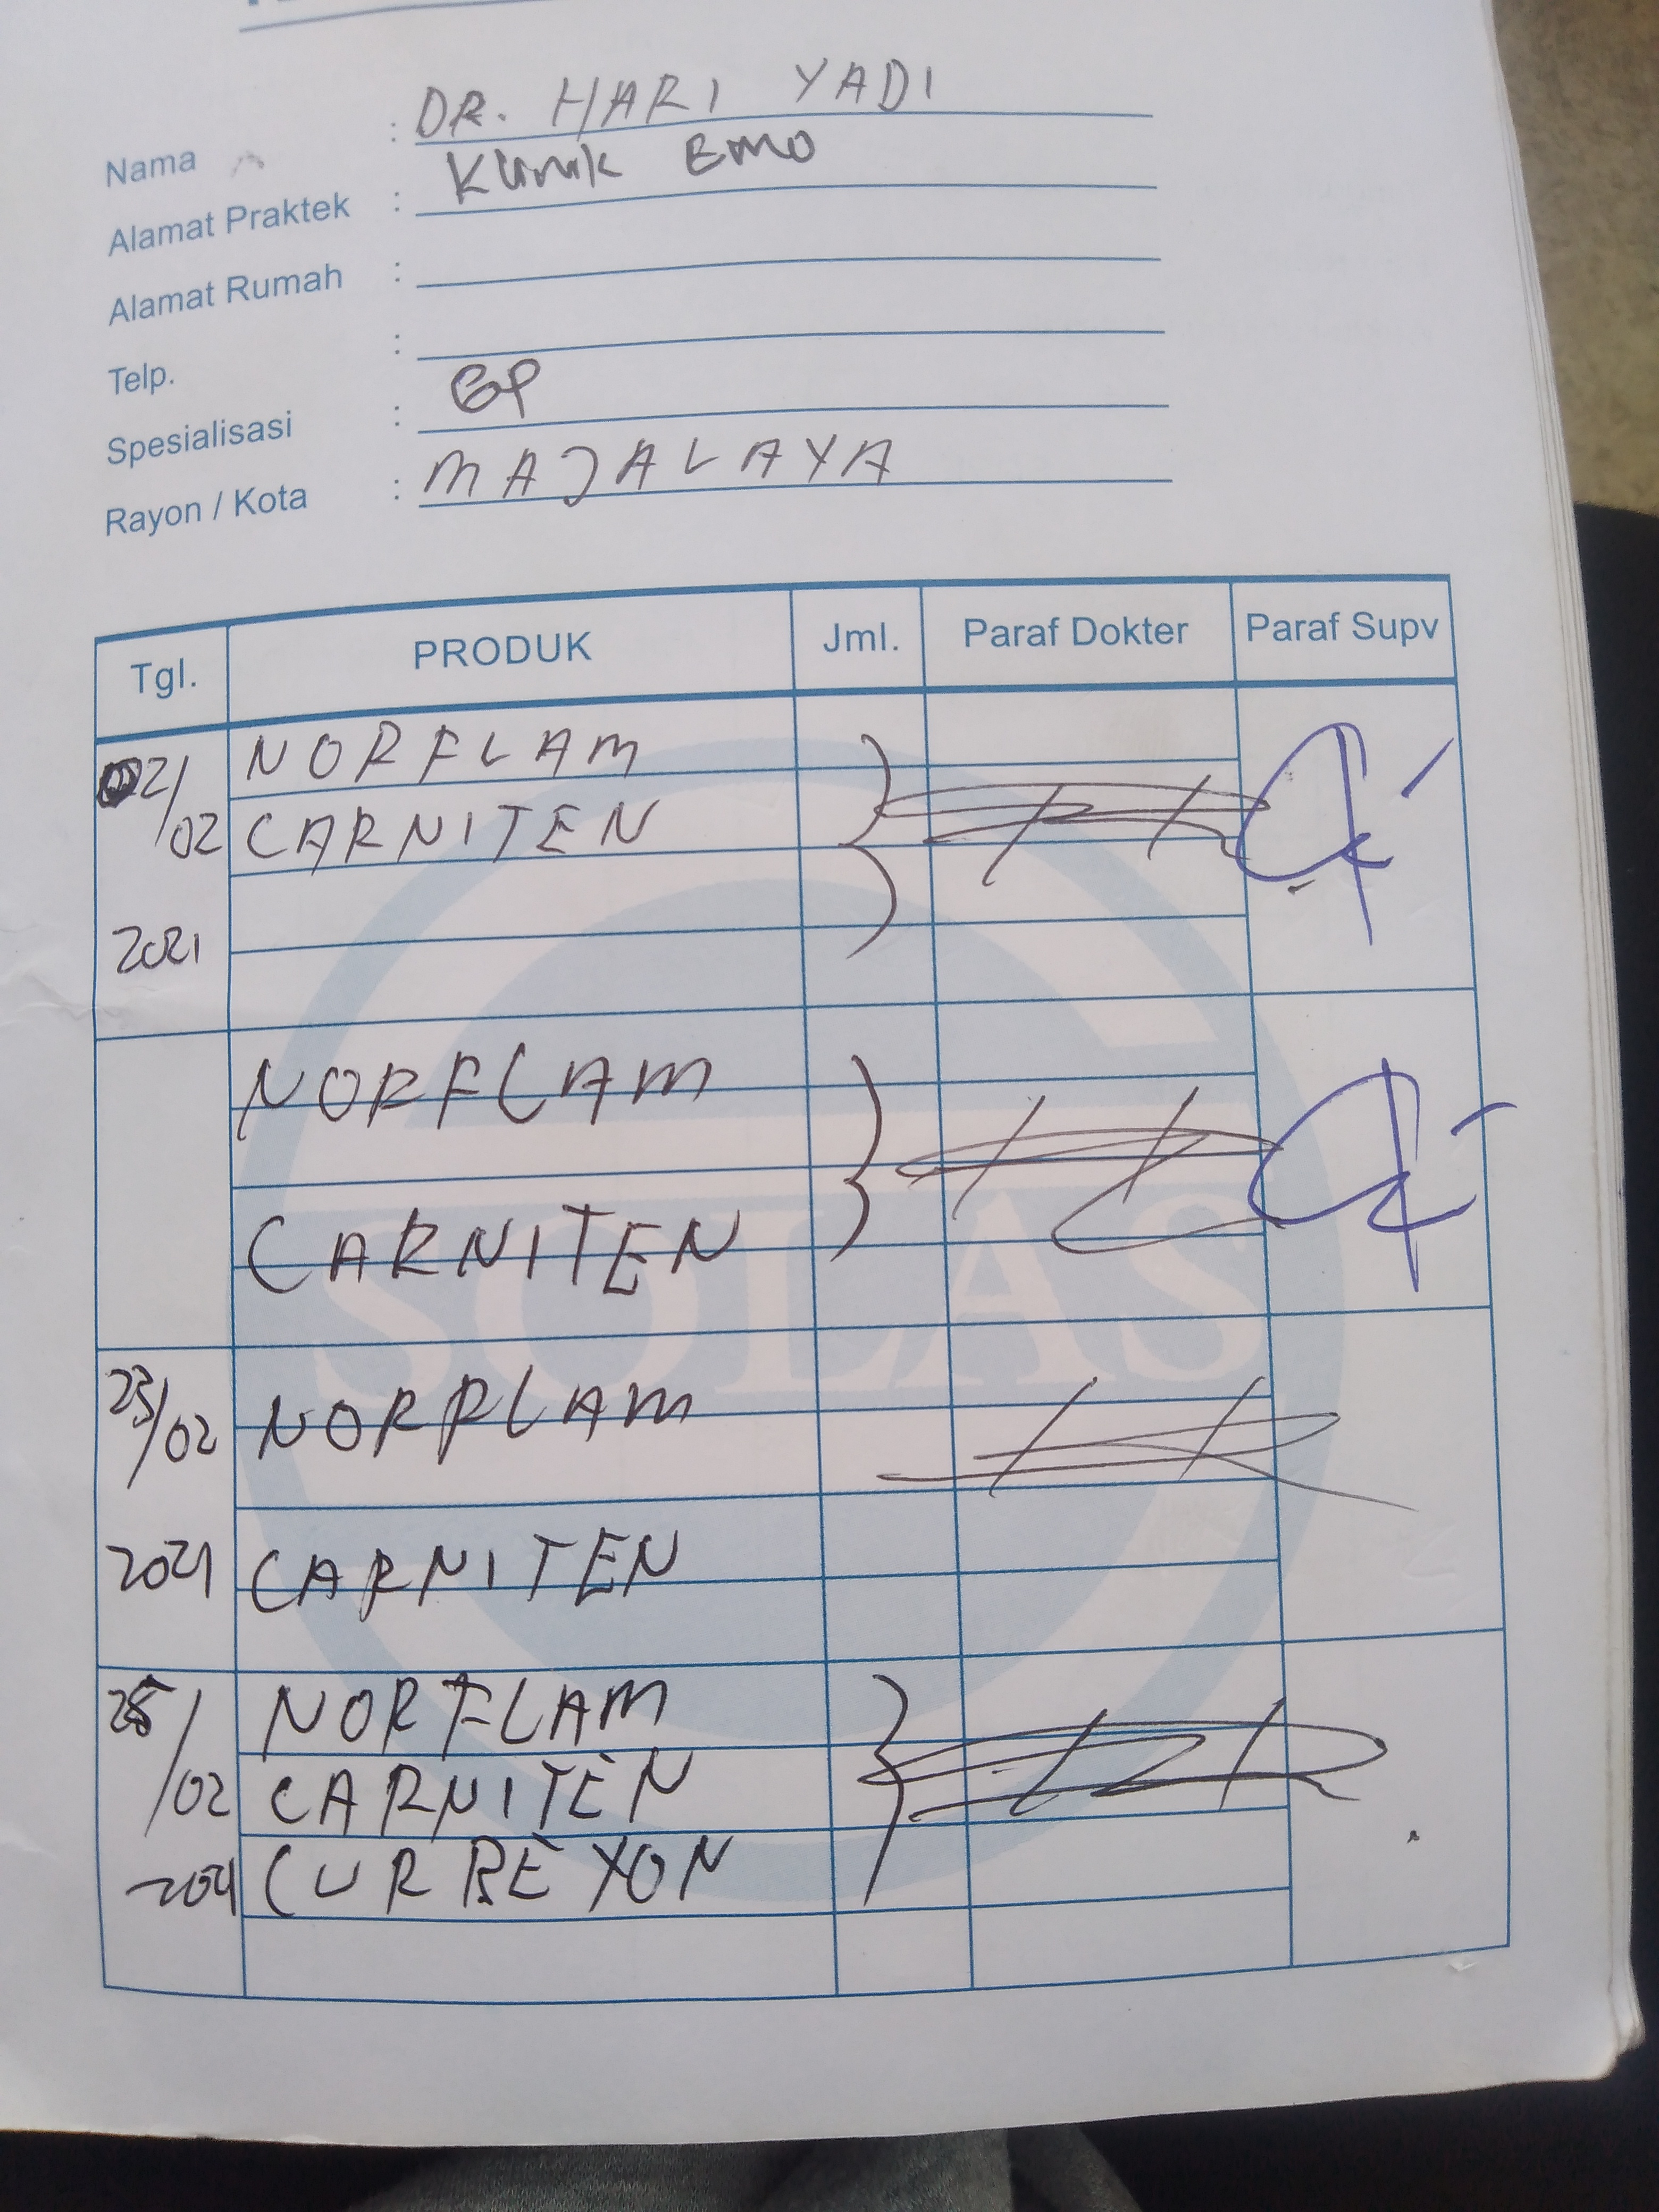 Nama : DR. HARI YADI
Alamat Praktek : Klinik Emo
Alamat Rumah :
Telp. :
Spesialisasi : GP
Rayon / Kota : MAJALAYA
Tgl. PRODUK Jml. Paraf Dokter Paraf Supv
02/02 NORFLAM
CARNITEN
2021
NORFLAM
CARNITEN
23/02 NORFLAM
2021 CARNITEN
25/02 NORFLAM
CARNITEN
2021 CURBEXON
SOLAS